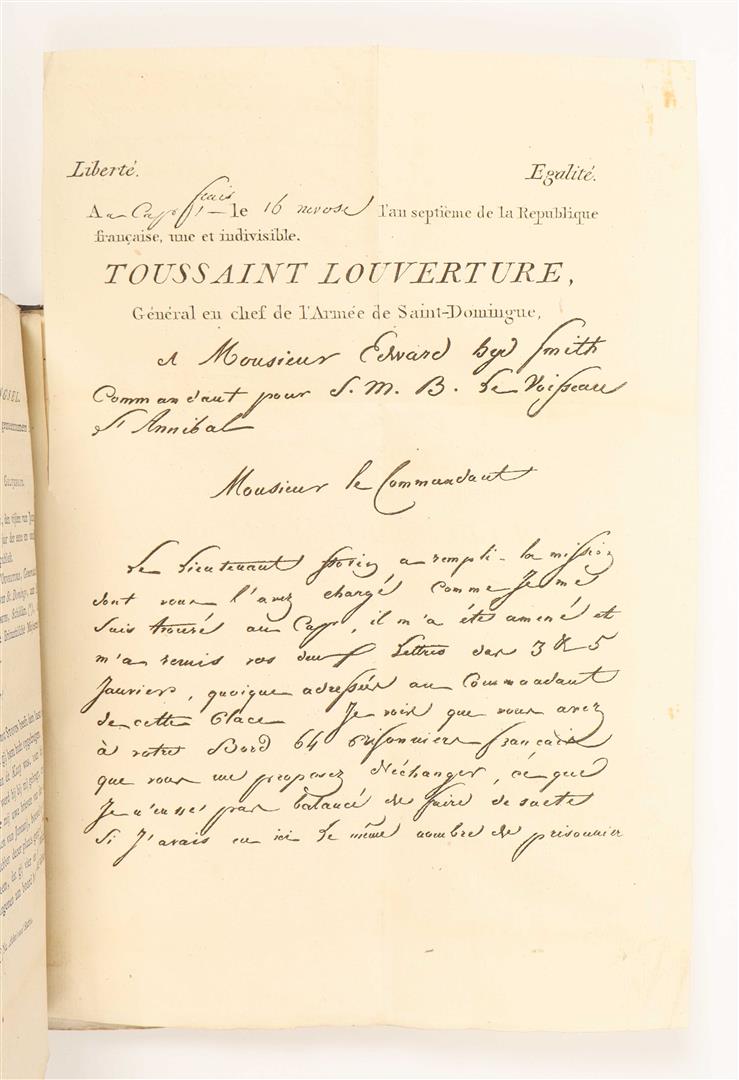 Liberté. Egalité.
Au Cap frais — le 16 nivose l'an septième de la Republique
française, une et indivisible.
TOUSSAINT LOUVERTURE,
Général en chef de l'Armée de Saint-Domingue,
A Monsieur Edward Smith
Commandant pour S. M. B. Le Vaisseau
L'Annibal
Monsieur le Commandant
Le Lieutenant a rempli la mission
dont vous l'avez chargé comme Je me
Suis trouvé au Cap, il m'a été amené et
m'a remis vos deux Lettres des 3 & 5
Janvier, quoique adressées au Commandant
de cette Place Je vois que vous avez
à votre Bord 64 Prisonniers français
que vous me proposez d'échanger, ce que
Je n'eusse pas balancé de faire de suite
Si J'avais eu ici Le même nombre de prisonnier